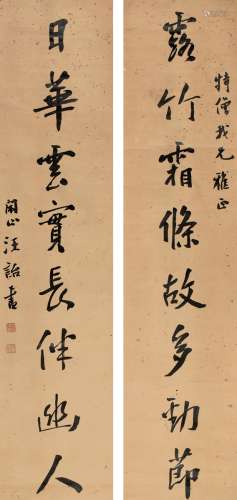 特僧我兄雅正
露竹霜條故多勁節
日華雲實長伴幽人
閑止汪詒書